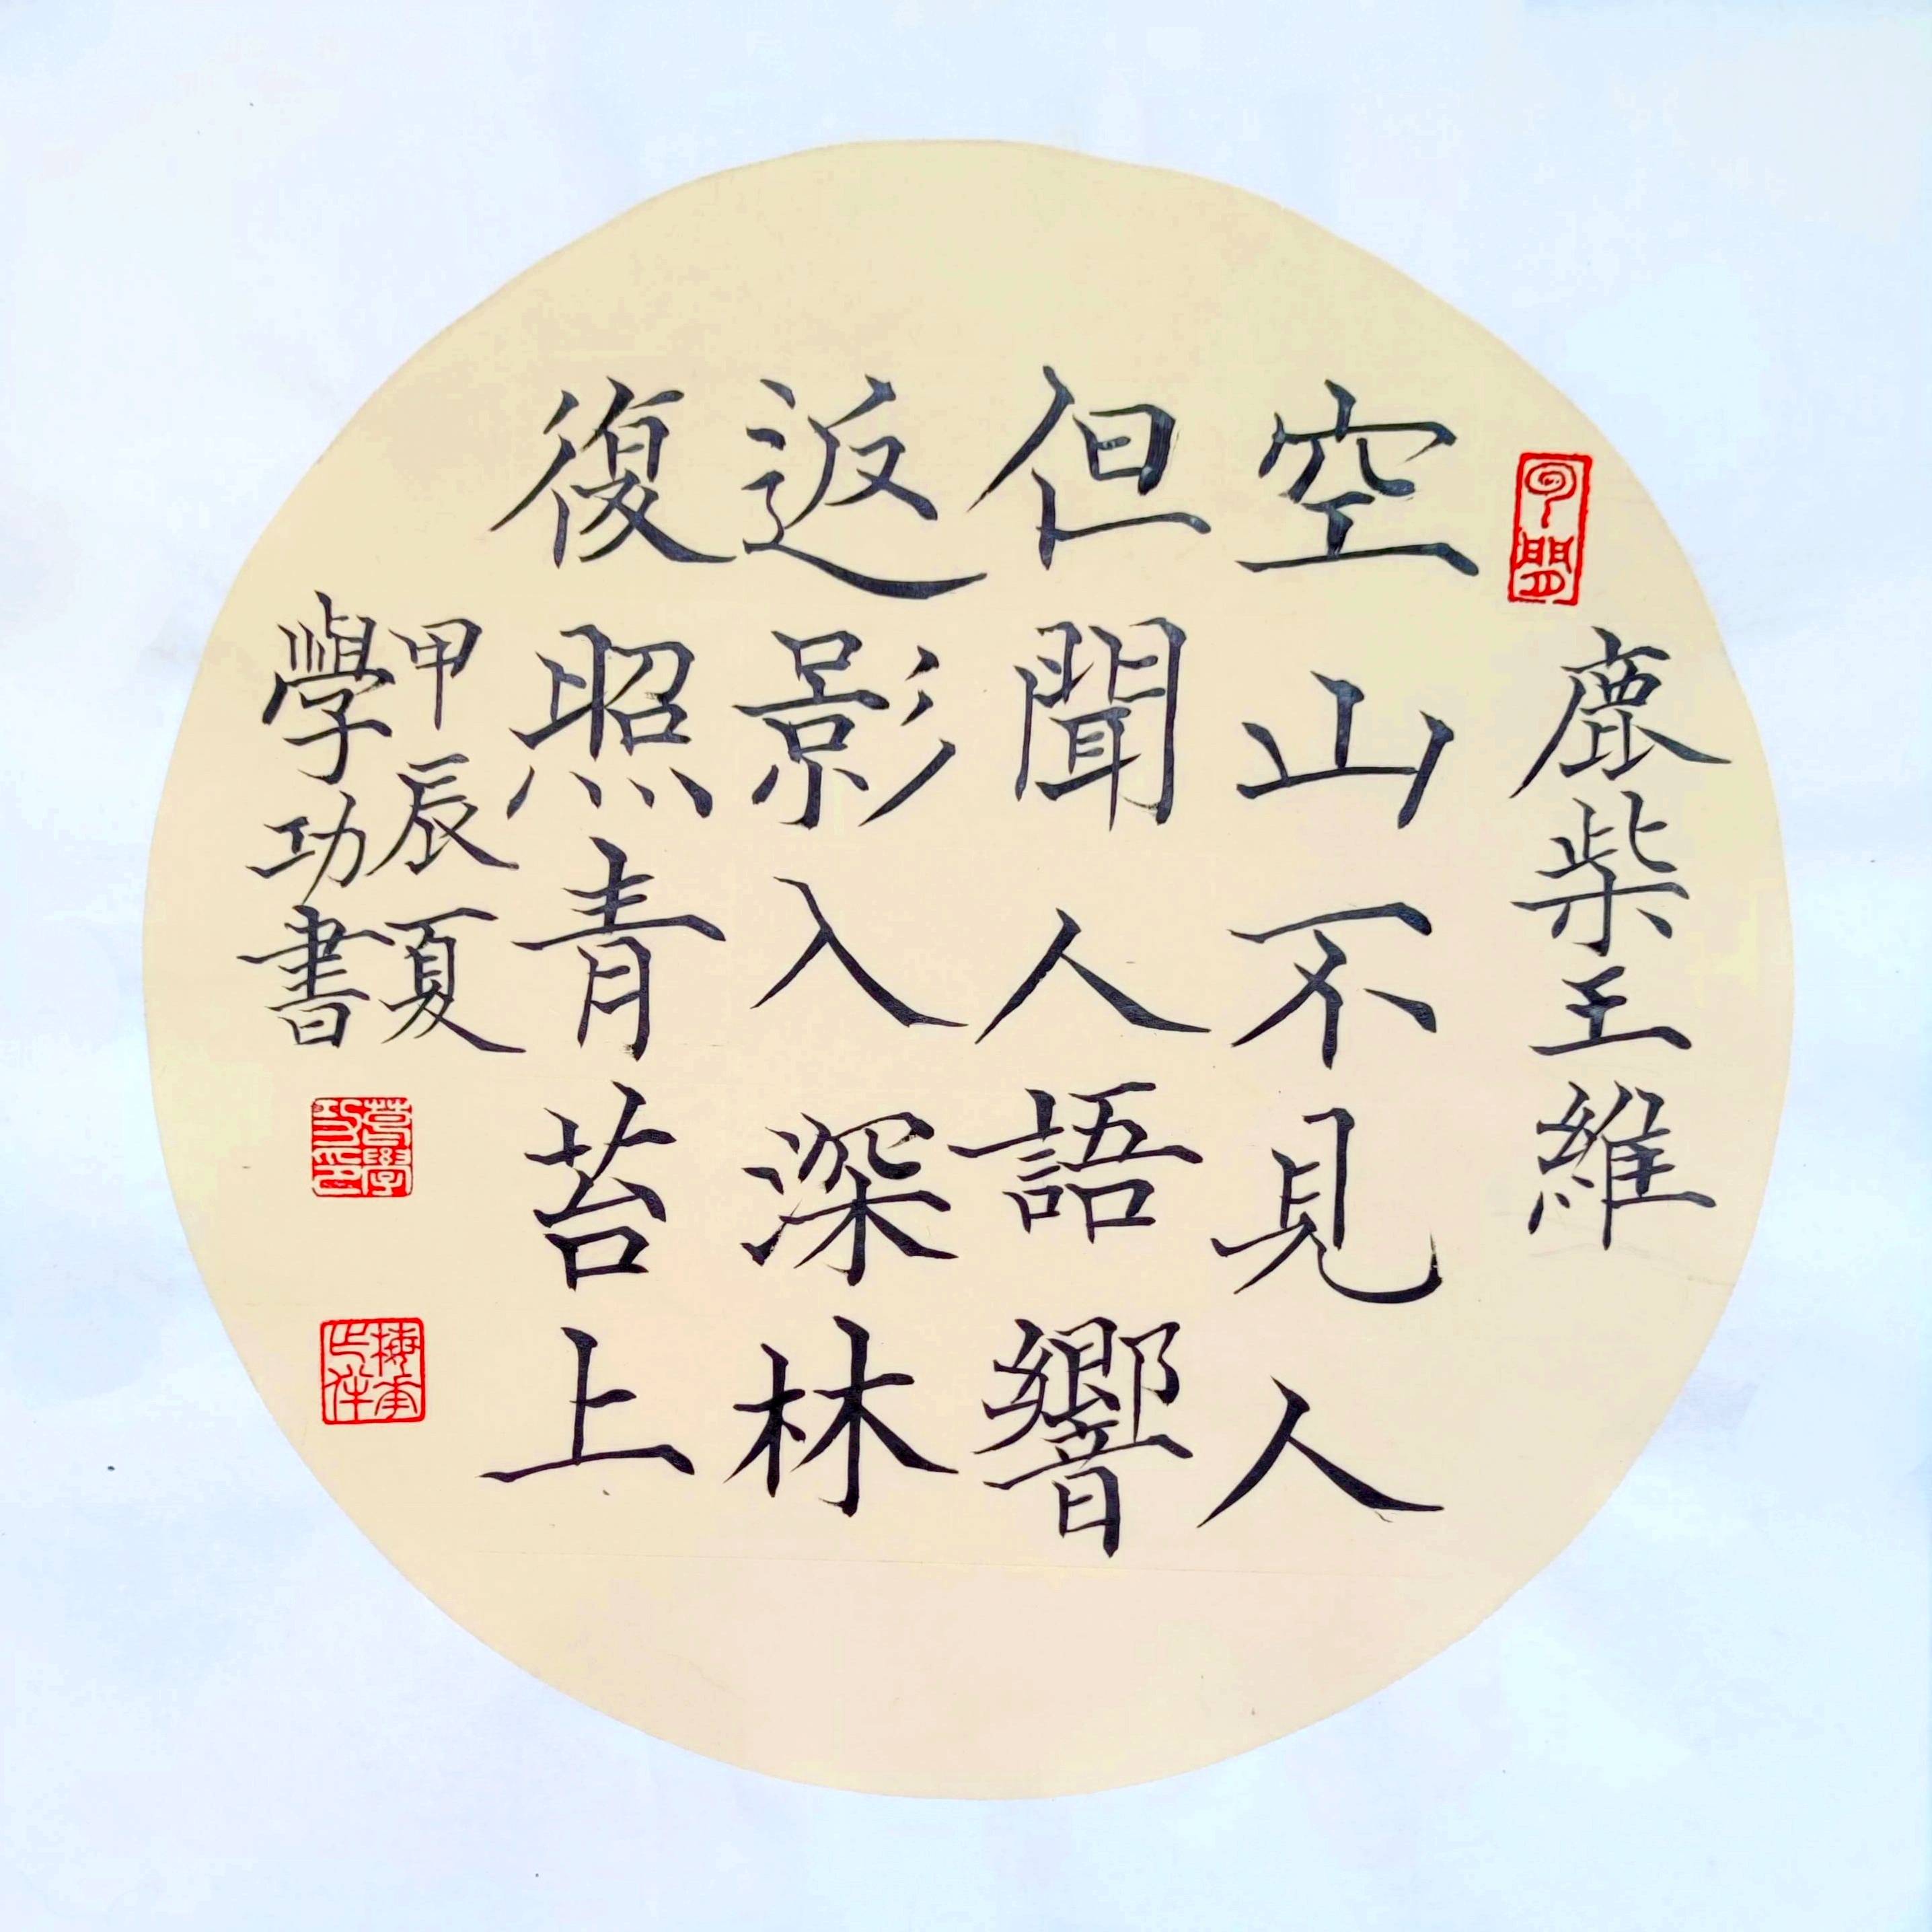 鹿柴王維
空山不見人
但聞人語響
返影入深林
復照青苔上
甲辰夏
學功書